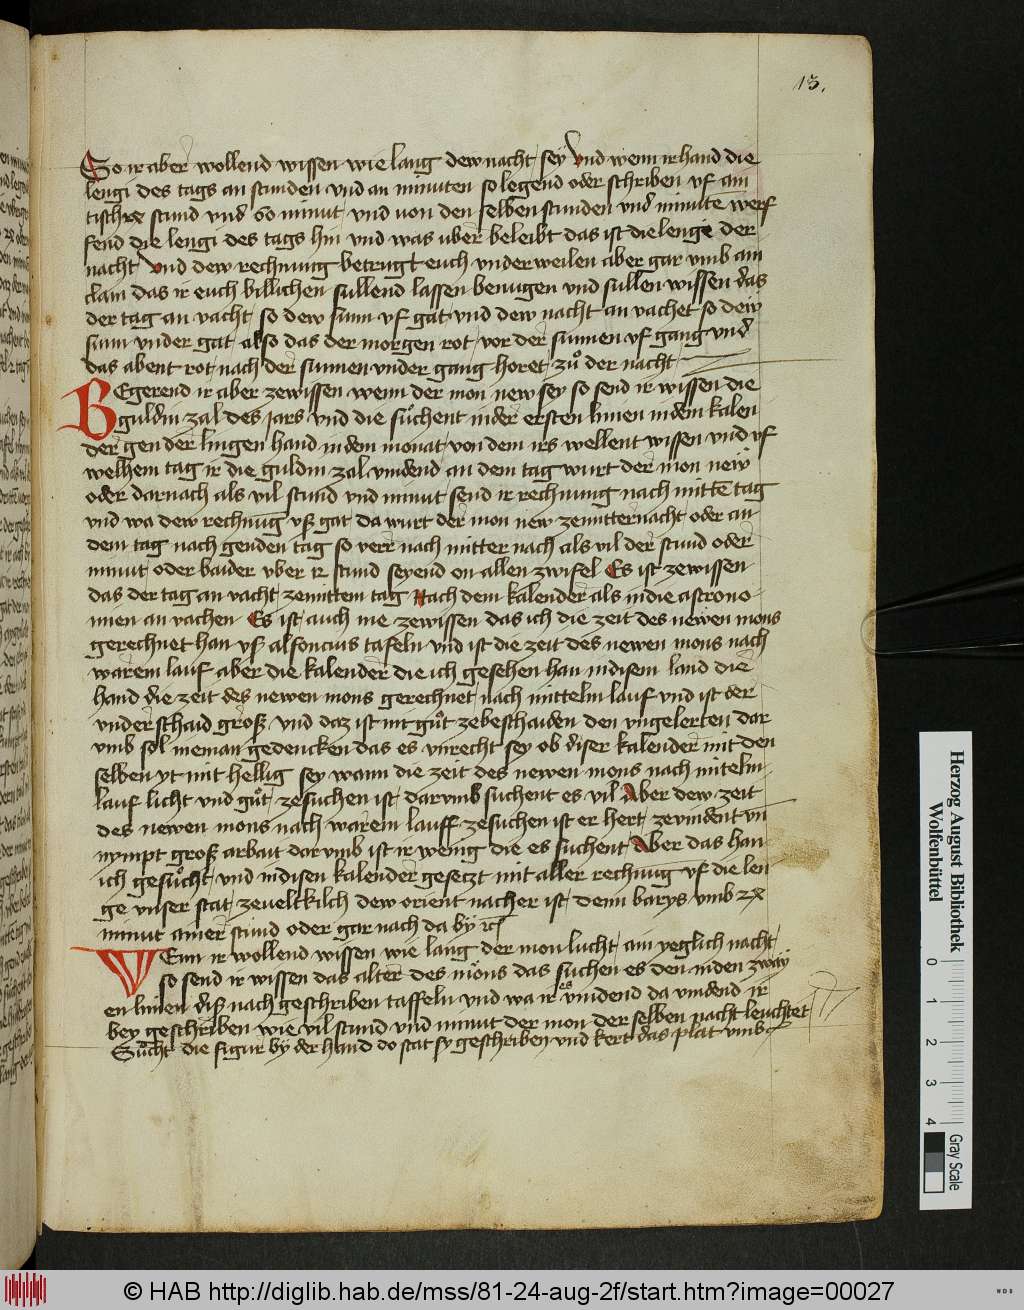 13.
So ir aber wollend wissen wie lang dew nacht sey Vnd wenn ir hand die
lengi des tags an stunden vnd an minuten so legend oder schriben vf ain
tisch zx stund vnd 60 minut vnd von den selben stunden vnd minute werf
fend die lengi des tags hin vnd was uber beleibt das ist die lenge der
nacht Vnd dew rechnung betrugt euch vnderweilen aber gar vmb ain
clain das ir euch billichen sullend lassen benugen vnd sullen wissen das
der tag an vacht so dew sunn vf gat vnd dew nacht an vachet so dew
sunn vnder gat also das der morgen rot vor der sunnen vf gang vnd
das abent rot nach der sunnen vnder gang horet zů der nacht
BEgerend ir aber zewissen wenn der mon new sey so send ir wissen die
guldin zal des jars vnd die sůchent in der ersten linien in dem kalen
der gen der lingen hand in dem monat von dem irs wellent wissen vnd vf
welhem tag ir die guldin zal vindend an dem tag wurt der mon new
oder darnach als vil stund vnd minut send ir rechnung nach mitte tag
vnd wa dew rechnūg vſz gat da wurt der mon new ze mitternacht oder an
dem tag nach genden tag so verr nach mitter nach als vil der stund oder
minut oder baider vber 12 stund seyend on allen zwifel Es ist zewissen
das der tag an vacht ze mittem tag Nach dem kalender als in die astrono
mien an vachen Es ist auch me zewissen das ich die zeit des newen mons
gerechnet han vſz alfoncius tafeln vnd ist die zeit des newen mons nach
warem lauf aber die kalender die ich gesehen han in disem land die
hand die zeit des newen mons gerechnet nach mittelm lauf vnd ist der
vnderschaid groſz vnd daz ist nit gůt zebeschaiden den vngelerten dar
vmb sol nieman gedencken das es vnrecht sey ob diser kalender mit den
selben yt mit hellig sey wann die zeit des newen mons nach mitelm
lauf licht vnd gůt zesuchen ist darvmb suchent es vil Aber dew zeit
des newen mons nach warem lauff zesuchen ist er hert zevindent vn
nympt groſz arbait darvmb ist ir wenig die es suchent Aber das han
ich gesůcht vnd in disen kalender gesetzt mit aller rechnug vf die len
ge vnser stat ze veltkilch dew orient nacher ist denn barys vmb zx
minut ainer stund oder gar nach da by
WEnn ir wollend wissen wie lang der mon lucht ain yeglich nacht
so send ir wissen das alter des mons das suchen es den in den zway
en linien diſz nach geschriben taffeln vnd wa ir es vindend da vindend ir
bey geschriben wie vil stund vnd minut der mon der selben nacht leuchtet
Sůcht die figur by der hand do stat sy geschriben vnd kert das plat vmb
Herzog August Bibliothek
Wolfenbüttel
0 1 2 3 4
Gray Scale
© HAB http://diglib.hab.de/mss/81-24-aug-2f/start.htm?image=00027